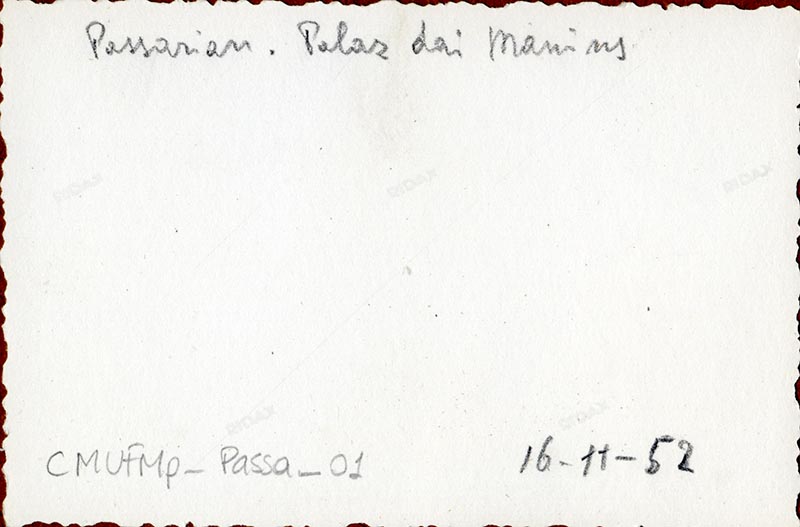 Passarian. Palaz dai Manins
RIDAX RIDAX RIDAX
RIDAX RIDAX
CMUFMp_Passa_01
16-11-52